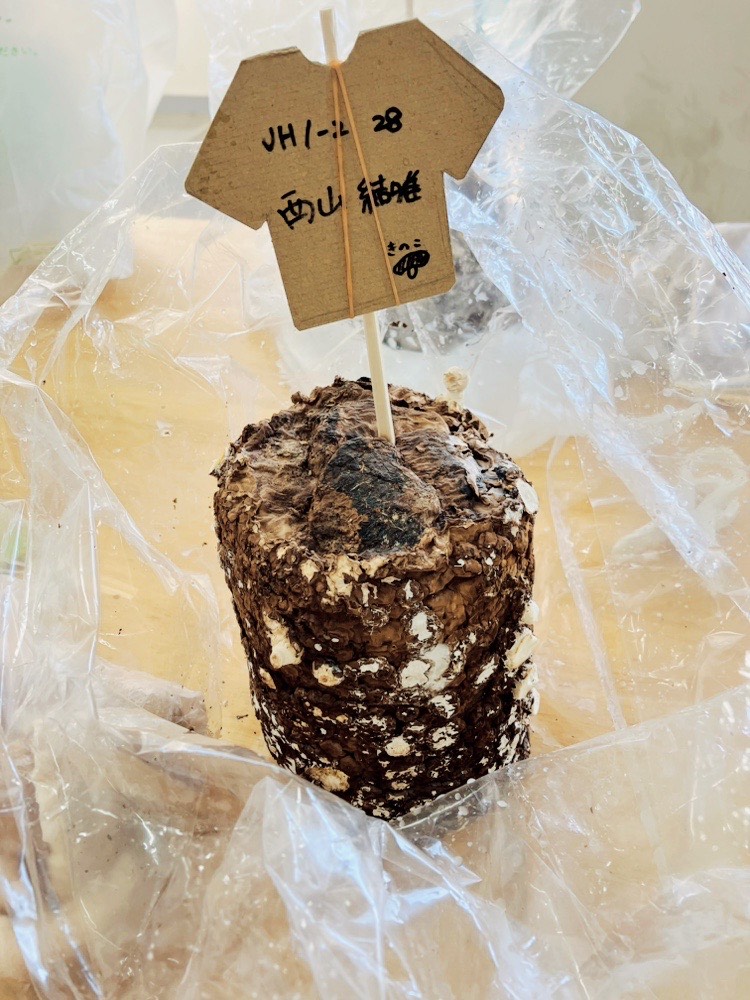 JH1-2 28
西山 結唯
きのこ